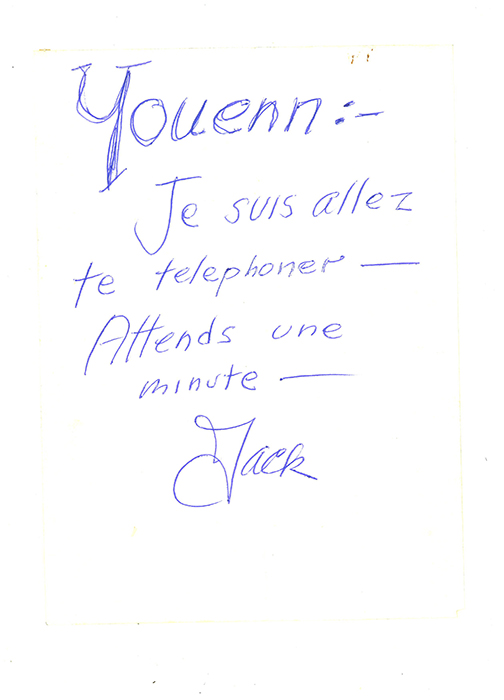 Youenn :-
Je suis allez
te telephoner —
Attends une
minute —
Jack